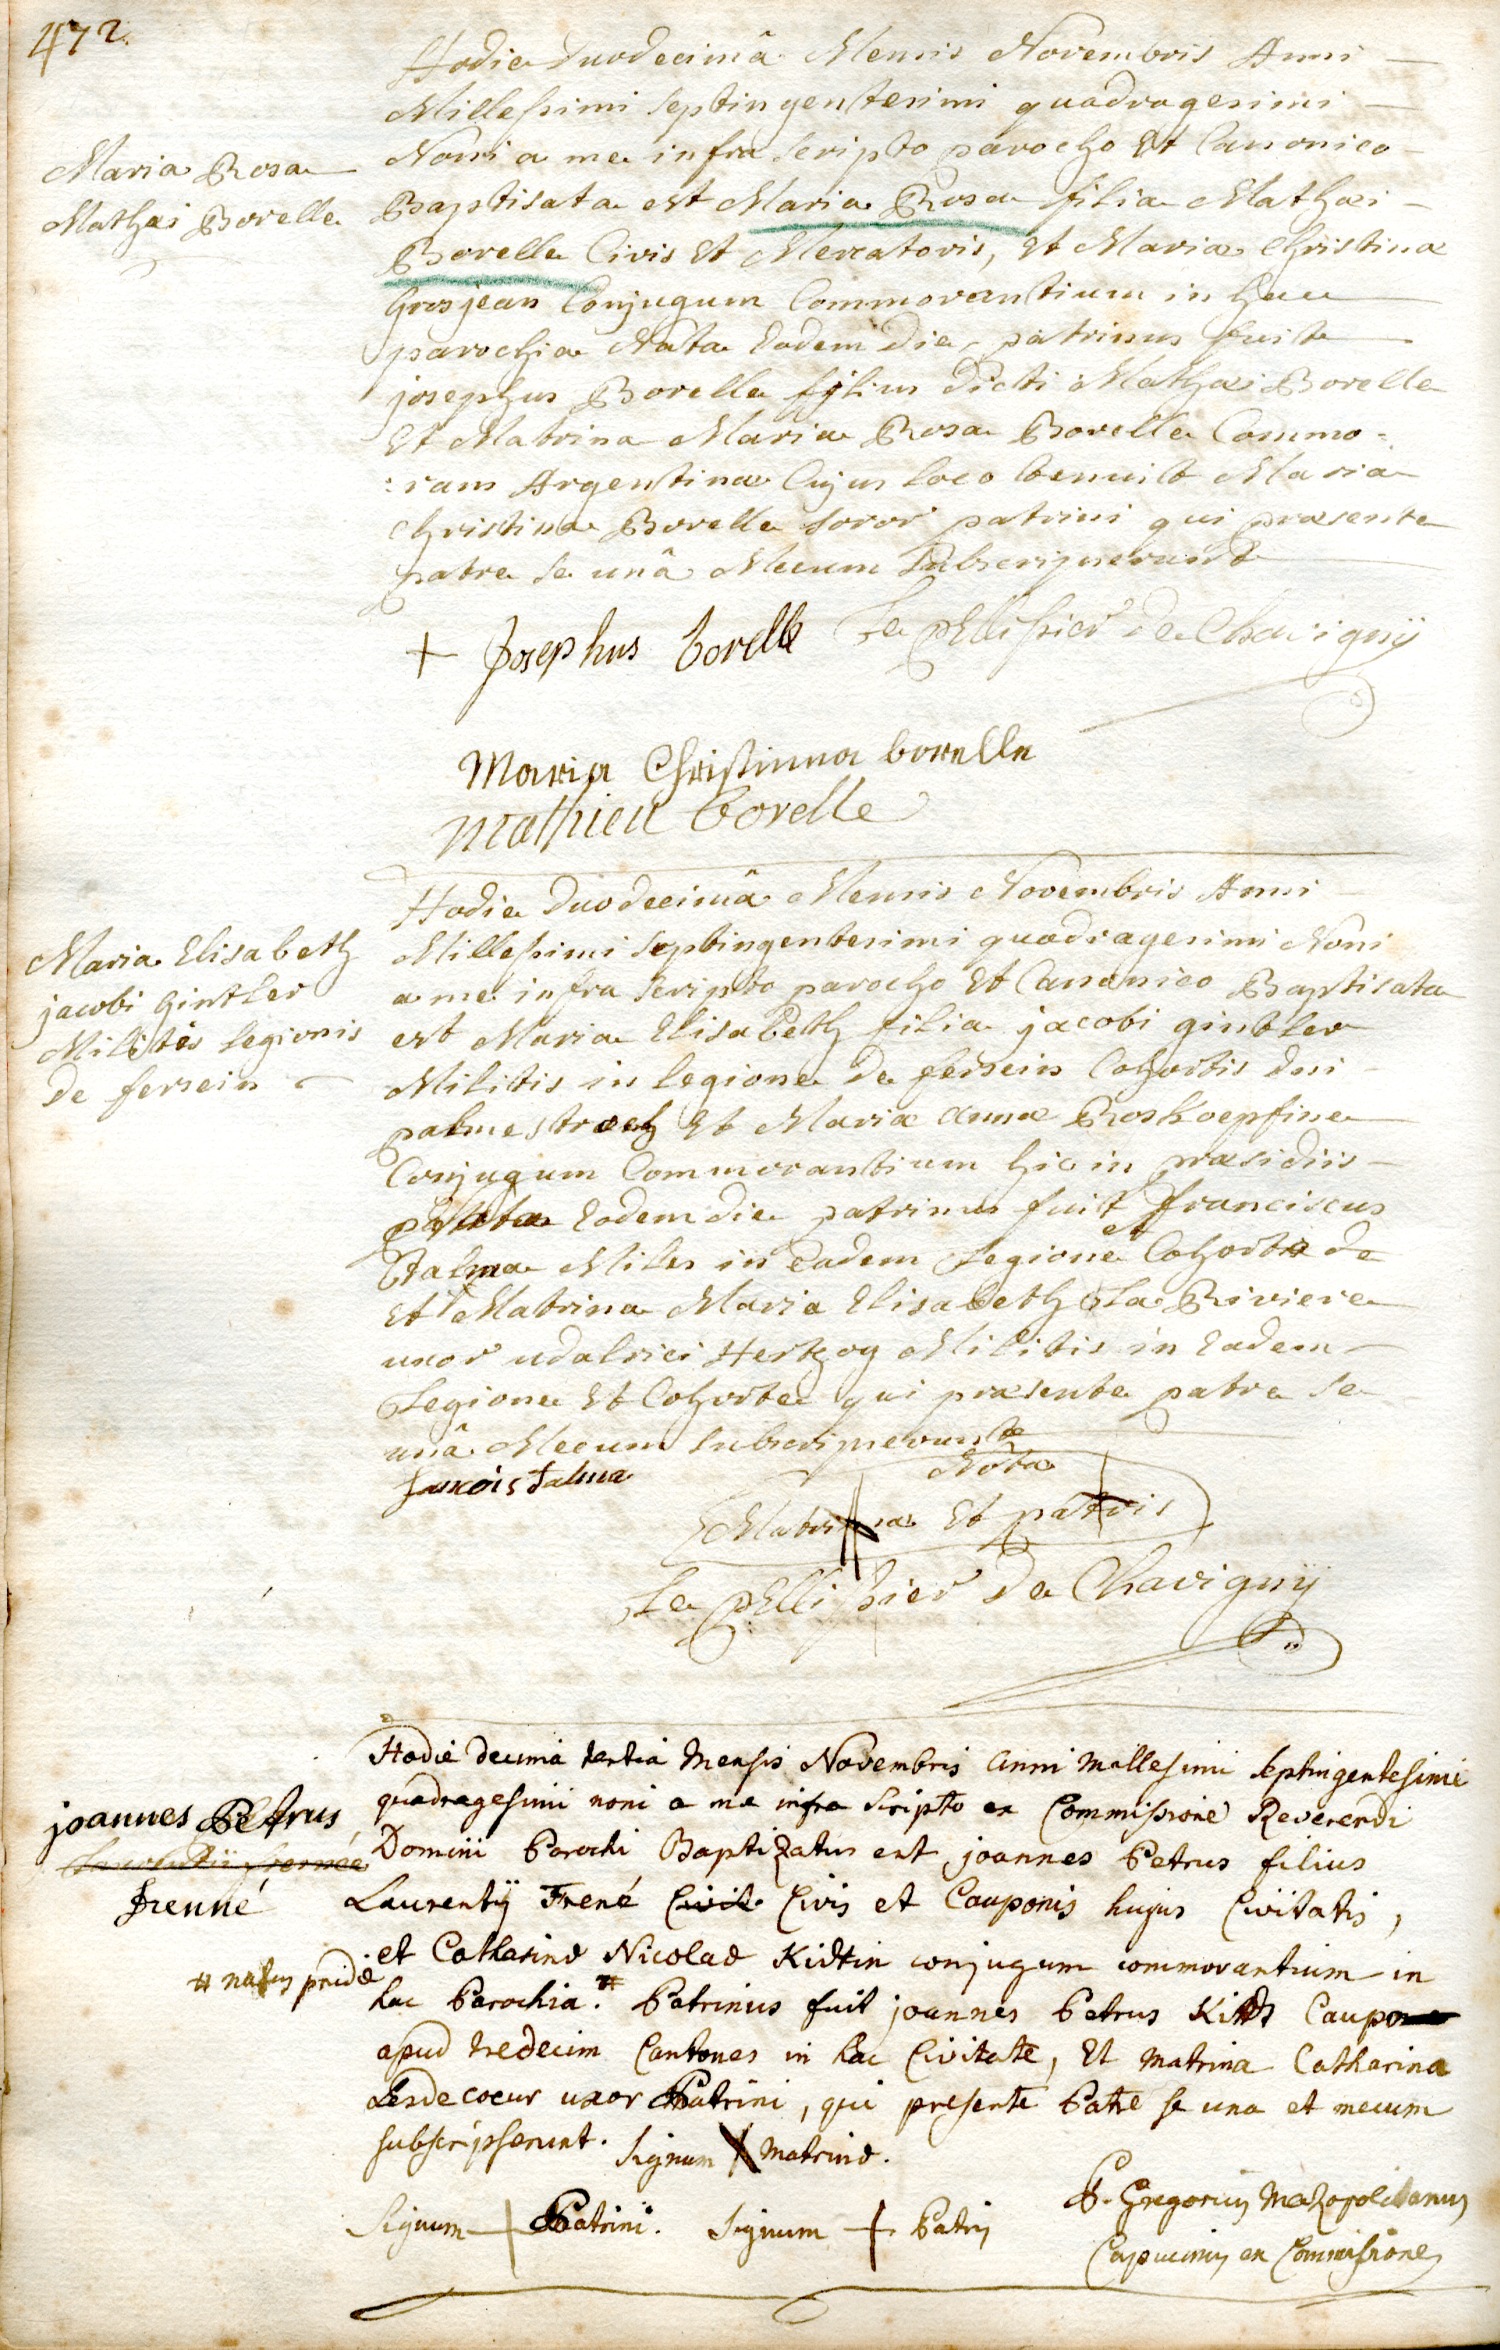 472.
Hodie Duodecimâ Mensis Novembris Anni
Millesimi Septingentesimi quadragesimi
Noni a me infra scripto parocho Et Canonico
Baptisata est Maria Rosa filia Mathæi
Borelle Civis Et Mercatoris, Et Mariæ Christinæ
Grosjean Conjugum Commorantium in hac
parochia Nata Eodem Die, patrinus fuit
josephus Borelle filius Dicti Mathæi Borelle
Et Matrina Maria Rosa Borelle Commo=
:rans Argentinæ Cujus loco tenuit Maria
Christina Borelle soror patrini qui præsente
patre se unâ Mecum Subscripserunt
Maria Rosa
Mathæi Borelle
+ Josephus borelle Le pEllissier De Chavignÿ
Maria Christinna borelle
Mathieu borelle
Hodie Duodecimâ Mensis Novembris Anni
Millesimi Septingentesimi quadragesimi Noni
a me infra scripto parocho Et Canonico Baptisata
est Maria Elisabeth filia jacobi gintler
Militis in legione De fersein Cohortis Dni
palmestroeh Et Mariæ Annæ Roskoepfine
Conjugum Commorantium hic in præsidiis
Eodem die patrinus fuit franciscus
Talma Miles in Eadem Legione et Cohorte De
Et Matrina Maria Elisabeth La Riviere
uxor udalrici Hertzog Militis in Eadem
Legione Et Cohorte qui præsente patre se
unâ Mecum subscripserunt
Maria Elisabeth
jacobi gintler
Militis legionis
De fersein
fancois talma
Nota
Matrinæ Et patris
Le pEllissier De Chavignÿ
Hodie decima tertia Mensis Novembris Anni Millesimi Septingentesimi
quadragesimi noni a me infra scripto ex Commissione Reverendi
Domini Parochi Baptizatus est joannes Petrus filius
Laurentÿ Frené Civis et Cauponis hujus Civitatis,
et Catharinæ Nicolae Kidtin conjugum commorantium in
hac Parochia.# Patrinus fuit joannes Petrus Caupo
apud tredecim Cantones in hac Civitate, Et Matrina Catharina
Lesdecoeur uxor Patrini, qui presente Patre se una et mecum
subscripserunt. Signum X Matrinæ.
joannes Petrus
frenné
# natus pridie
Signum + Patrini. Signum + Patris
P. Gregorius
Capucinus ex Commissione